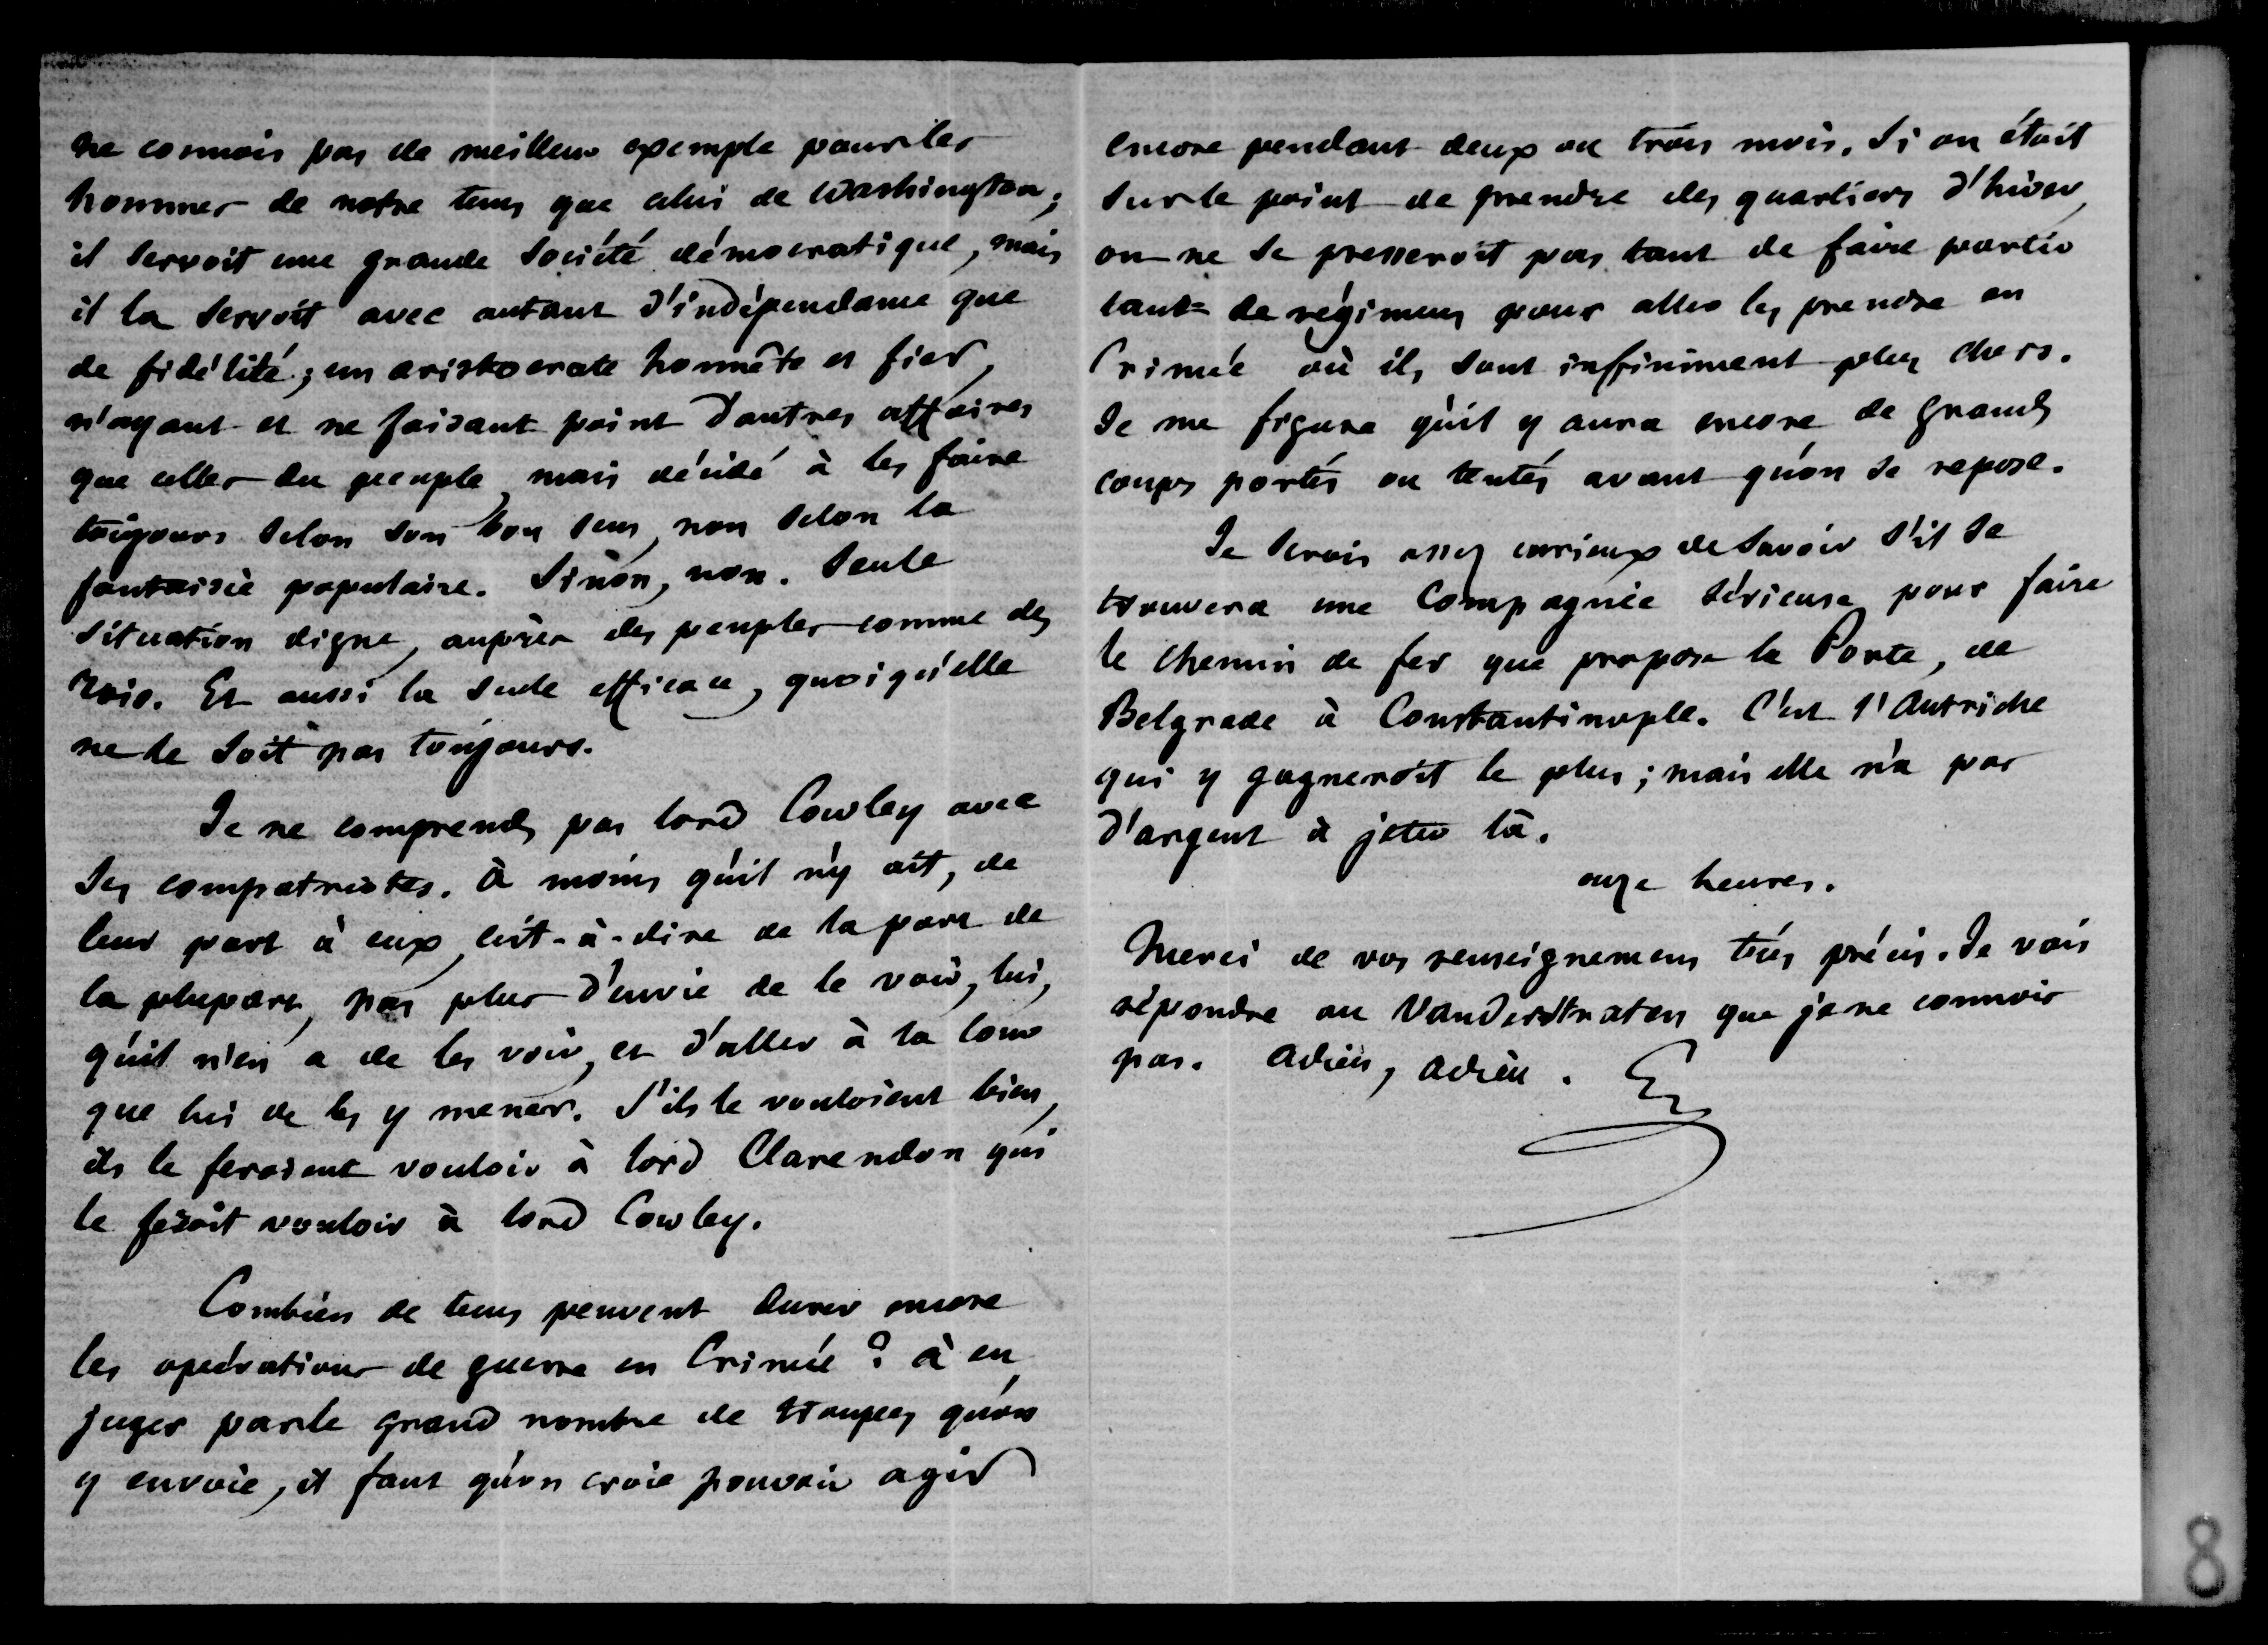 ne connois pas de meilleur exemple pour les
hommes de notre tems que celui de Washington;
il servoit une grande société démocratique, mais
il la servoit avec autant d'indépendance que
de fidélité; un aristocrate honnête et fier,
n'ayant et ne faisant point d'autres affaires
que celles du peuple, mais décidé à les faire
toujours selon son bon sens, non selon la
fantaisie populaire. Sinon, non. Seule
situation digne, auprès des peuples comme des
rois. Et aussi la seule efficace, quoiqu'elle
ne le soit pas toujours.
Je ne comprends pas lord Cowley avec
ses compatriotes. à moins qu'il n'y ait, de
leur part à eux, c'est-à-dire de la part de
la plupart, pas plus d'envie de le voir, lui,
qu'il n'en a de les voir, et d'aller à la cour
que lui de les y mener. S'ils le vouloient bien,
ils le feroient vouloir à lord Clarendon qui
le feroit vouloir à lord Cowley.
Combien de tems peuvent durer encore
les opérations de guerre en Crimée? à en
juger par le grand nombre de troupes qu'on
y envoie, il faut qu'on croie pouvoir agir
encore pendant deux ou trois mois. Si on étoit
sur le point de prendre des quartiers d'hiver,
on ne se presseroit pas tant de faire partir
tant de régimens pour aller les prendre en
Crimée où ils sont infiniment plus chers.
Je me figure qu'il y aura encore de grands
coups portés ou tentés avant qu'on se repose.
Je serois assez curieux de savoir s'il se
trouvera une Compagnie sérieuse pour faire
le chemin de fer que propose la Porte, de
Belgrade à Constantinople. C'est l'Autriche
qui y gagneroit le plus; mais elle n'a pas
d'argent à jeter là.
onze heures.
Merci de vos renseignemens très précis. Je vais
répondre au Vanderstraten que je ne connois
pas. Adieu, adieu.
8